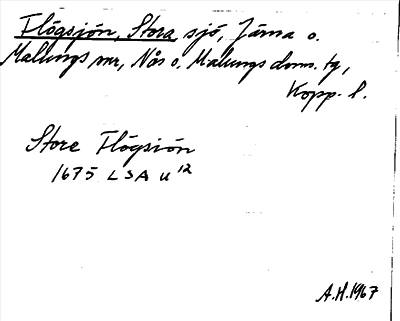 Flögsjön, Stora sjö, Järna o.
Malungs snr, Nås o. Malungs doms. tg,
Kopp. l.
Store Flögsiön
1675 LSA U 12
A.H. 1967